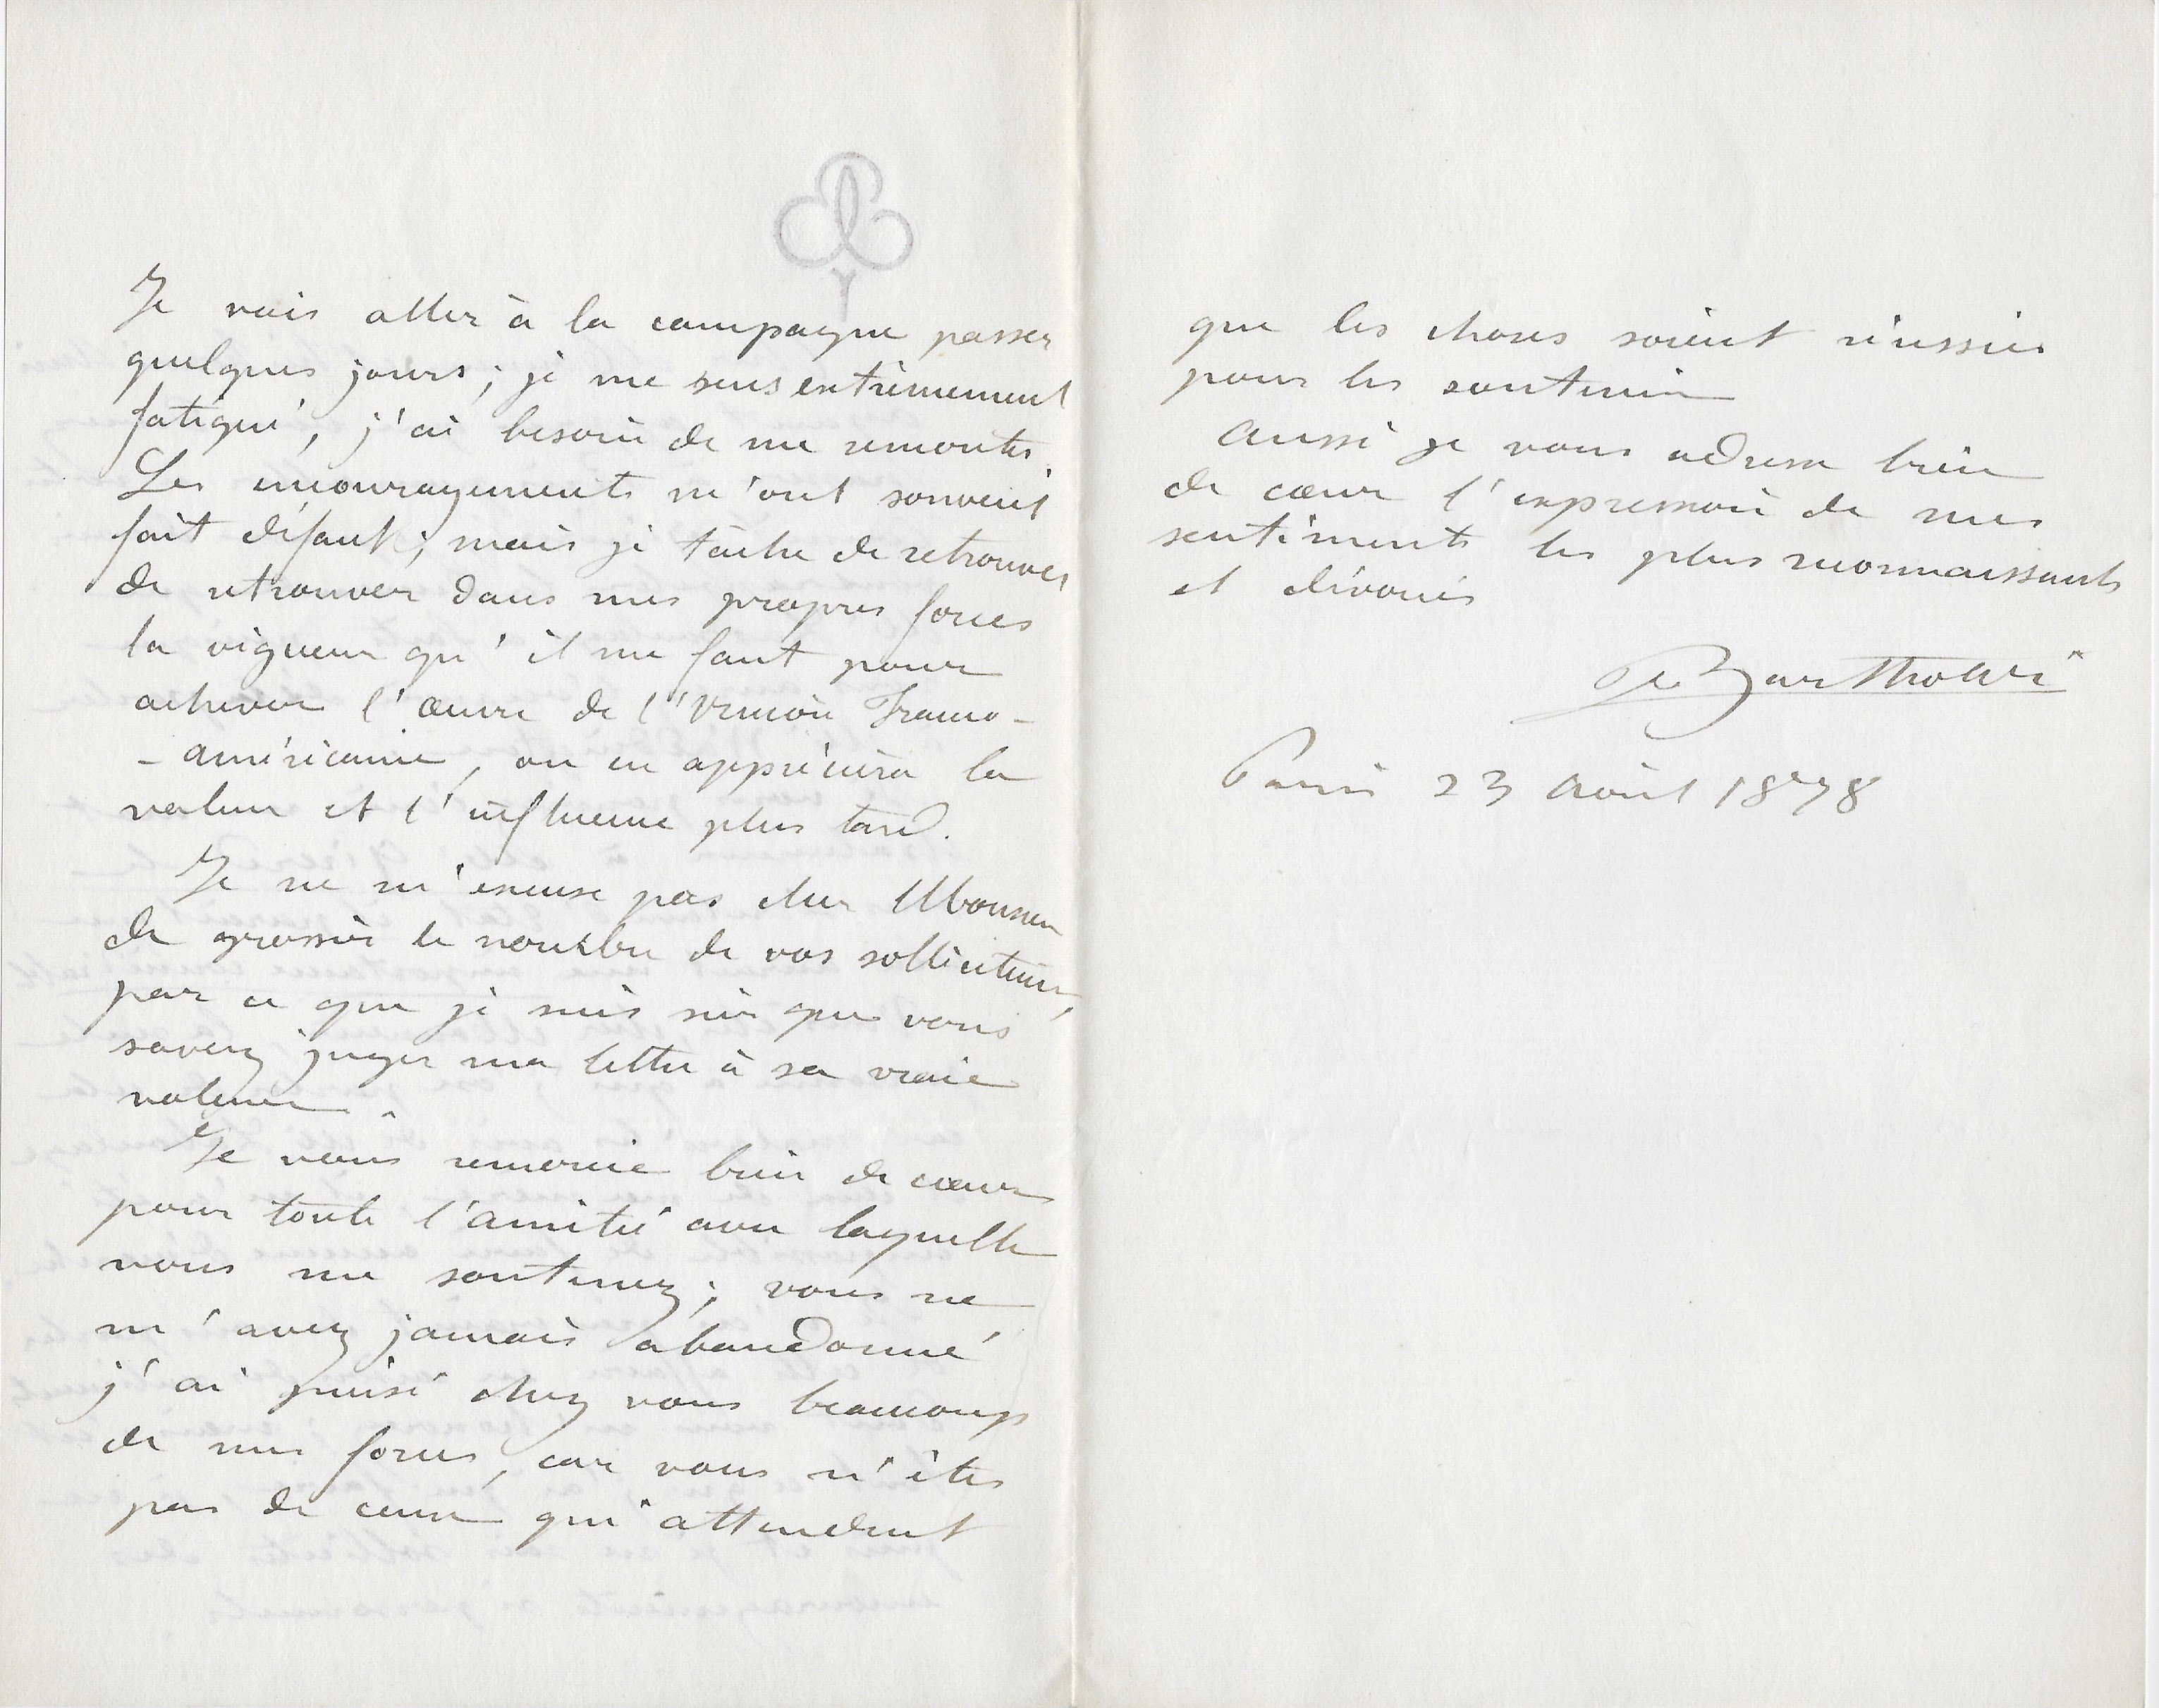 Je vais aller à la campagne passer
quelques jours ; je me sens extrêmement
fatigué, j'ai besoin de me remonter.
Les encouragements m'ont souvent
fait défaut ; mais je tâche de retrouver
de retrouver dans mes propres forces
la vigueur qu'il me faut pour
achever l'œuvre de l'Union Franco-
-américaine, on en appréciera la
valeur et l'influence plus tard.
Je ne m'excuse pas cher Monsieur
de grossir le nombre de vos solliciteurs,
par ce que je suis sûr que vous
savez juger ma lettre à sa vraie
valeur.
Je vous remercie bien de cœur
pour toute l'amitié avec laquelle
vous me soutenez ; vous ne
m'avez jamais abandonné
j'ai puisé chez vous beaucoup
de mes forces, car vous n'êtes
pas de ceux qui attendent
que les choses soient réussies
pour les soutenir
Aussi je vous adresse bien
de cœur l'expression de mes
sentiments les plus reconnaissants
et dévoués
Bartholdi
Paris 23 Août 1878